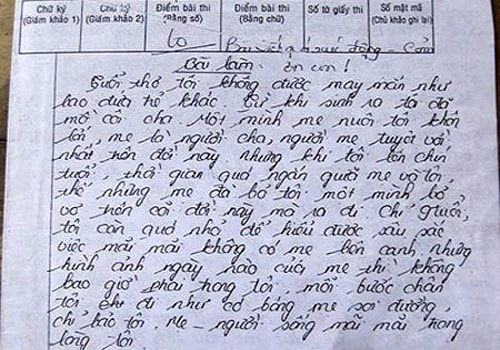 Chữ ký Chữ ký Điểm bài thi Điểm bài thi Số tờ giấy thi Số mật mã
(Giám khảo 1) (Giám khảo 2) (Bằng số) (Bằng chữ) (Chủ khảo ghi lại)
10 Bài viết quá xúc động - Cảm
Bài làm. ơn con!
Tuổi thơ tôi không được may mắn như
bao đứa trẻ khác. Từ khi sinh ra tôi đã
mồ côi cha. Một mình mẹ nuôi tôi khôn
lớn, mẹ là người cha, người mẹ tuyệt vời
nhất trên đời này. Nhưng khi tôi lên chín
tuổi, thời gian quá ngắn gười mẹ và tôi,
thế nhưng mẹ đã bỏ tôi một mình bơ
vơ trên cõi đời này mà ra đi. Chỉ 9 tuổi,
tôi còn quá nhỏ để hiểu được sâu sắc
việc mãi mãi không có mẹ bên cạnh nhưng
hình ảnh ngày nào của mẹ thì không
bao giờ phai trong tôi, mỗi bước chân
tôi khi đi như có bóng mẹ soi đường,
chỉ bảo tôi. Mẹ - người sống mãi mãi trong
lòng tôi.